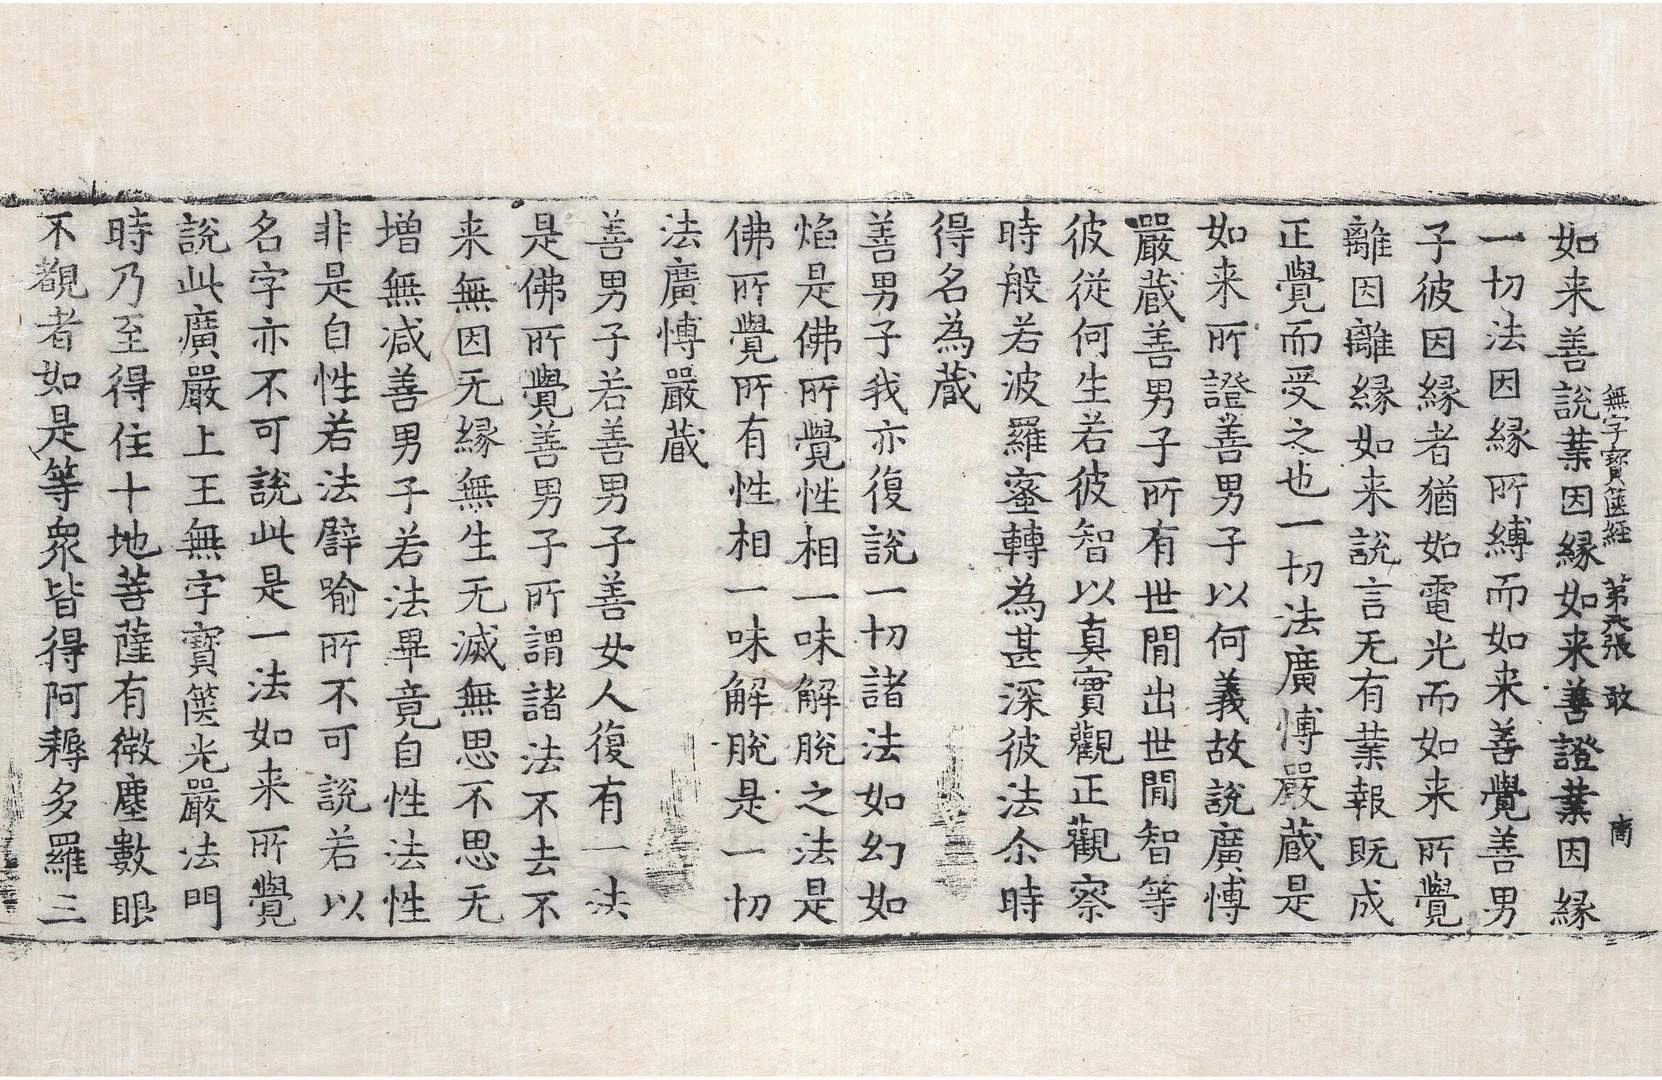 無字寶篋經 第六張 敢 啇
如来善說業因緣如来善證業因緣
一切法因緣所縛而如来善覺善男
子彼因緣者猶如電光而如来所覺
離因離緣如来說言无有業報既成
正覺而受之也一切法廣博嚴蔵是
如来所證善男子以何義故說廣博
嚴蔵善男子所有世閒出世閒智等
彼從何生若彼智以真實觀正觀察
時般若波羅蜜轉為甚深彼法尒時
得名為蔵
善男子我亦復說一切諸法如幻如
焰是佛所覺性相一味解脫之法是
佛所覺所有性相一味解脫是一切
法廣博嚴蔵
善男子若善男子善女人復有一法
是佛所覺善男子所謂諸法不去不
来無因无緣無生无滅無思不思无
增無减善男子若法畢竟自性法性
非是自性若法譬喻所不可說若以
名字亦不可說此是一法如来所覺
說此廣嚴上王無字寶篋光嚴法門
時乃至得住十地菩薩有微塵數眼
不覩者如是等衆皆得阿耨多羅三